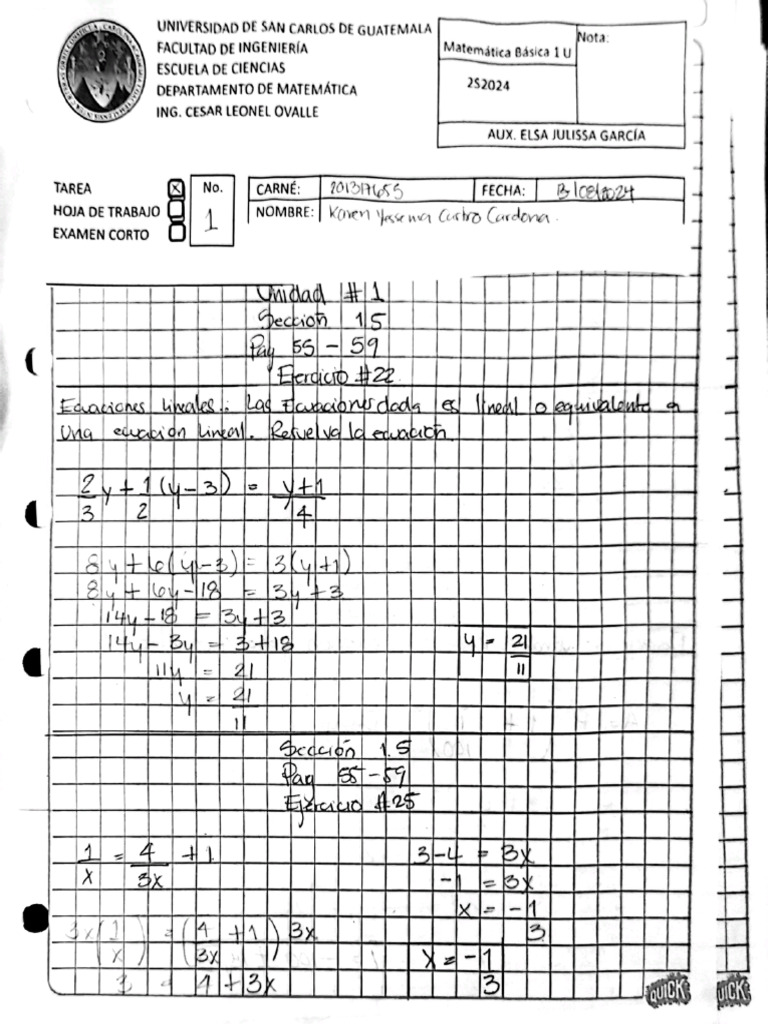 UNIVERSIDAD DE SAN CARLOS DE GUATEMALA
FACULTAD DE INGENIERÍA
ESCUELA DE CIENCIAS
DEPARTAMENTO DE MATEMÁTICA
ING. CESAR LEONEL OVALLE
Matemática Básica 1 U
Nota:
2S2024
AUX. ELSA JULISSA GARCÍA
TAREA X
HOJA DE TRABAJO
EXAMEN CORTO
No.
1
CARNÉ: 201317655
FECHA: 13/08/2024
NOMBRE: Karen Castro Cardona.
Unidad #1
Sección 1.5
Pag 55 - 59
Ejercicio #22
Ecuaciones lineales: Las Ecuaciones dada es lineal o equivalente a
una ecuación lineal. Resuelva la ecuación.
2/3 y + 1/2 (y-3) = y+1/4
8y + 6(y-3) = 3(y+1)
8y + 6y - 18 = 3y + 3
14y - 18 = 3y + 3
14y - 3y = 3 + 18
11y = 21
y = 21/11
y = 21/11
Sección 1.5
Pag 55 - 59
Ejercicio #25
1/x = 4/3x + 1
3x(1/x) = (4/3x + 1) 3x
3 = 4 + 3x
3 - 4 = 3x
-1 = 3x
x = -1/3
x = -1/3
QUICK
QUICK